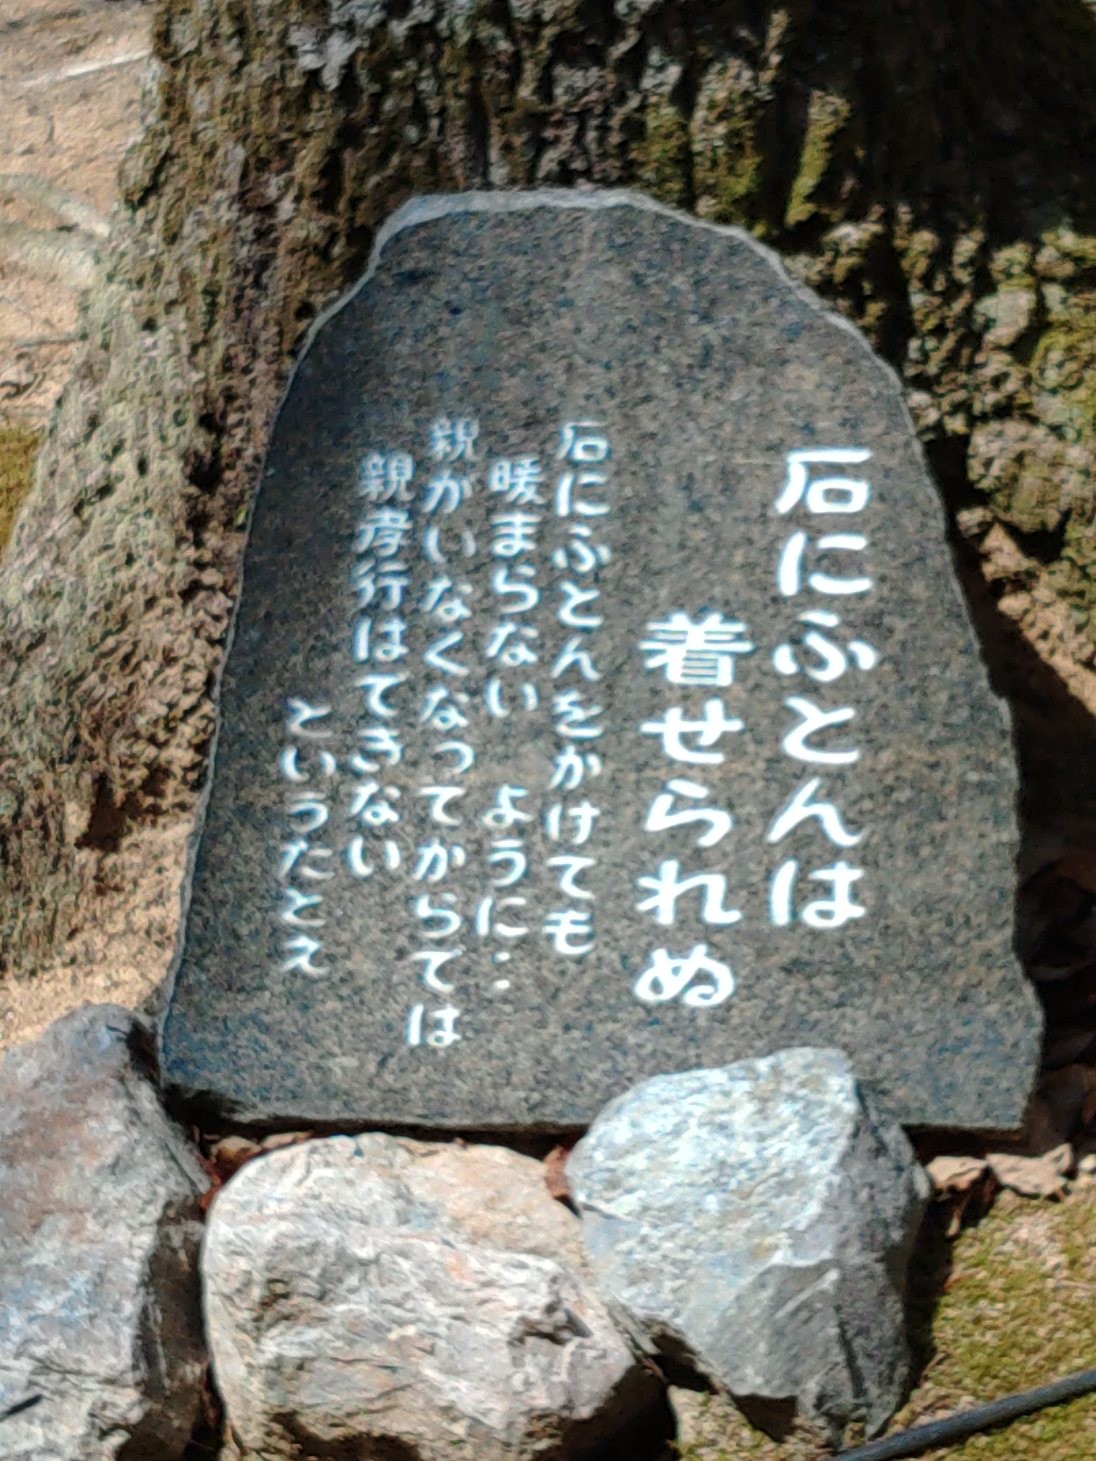 石にふとんは
着せられぬ
石にふとんをかけても
暖まらない ように‥
親がいなくなってからでは
親孝行はできない
といったとえ